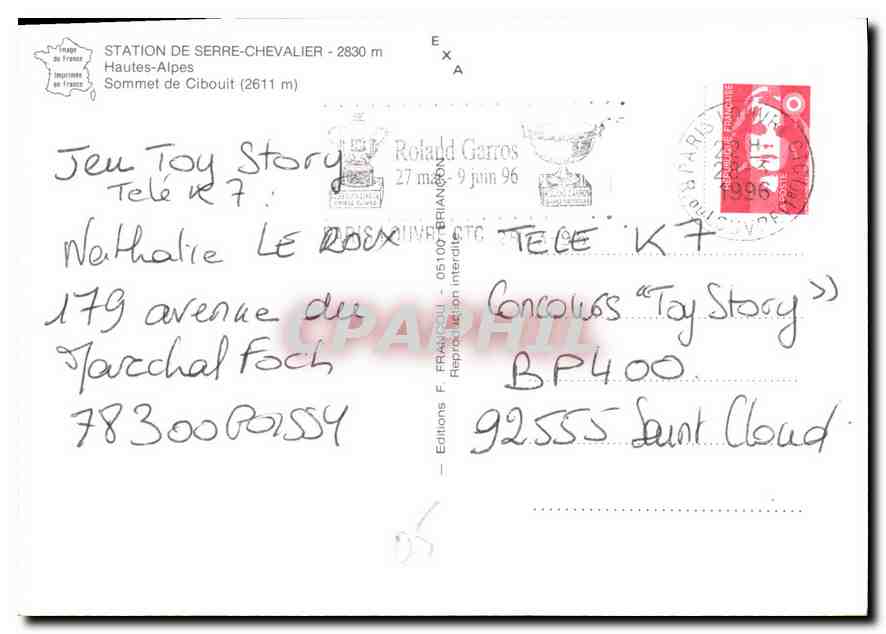 Image
de France
Imprimée
en France
STATION DE SERRE-CHEVALIER - 2830 m
Hautes-Alpes
Sommet de Cibouit (2611 m)
E
X
A
Roland Garros
27 mai - 9 juin 96
REPUBLIQUE FRANÇAISE
LA POSTE
PARIS LOUVRE
1996
PARIS LOUVRE CTC
Jeu Toy Story
Télé K7 :
Nathalie LE ROUX
179 avenue du
Marechal Foch
78300 POISSY
— Editions F. FRANCOU - 05100 BRIANÇON
Reproduction interdite
TELE K7
Concours "Toy Story"
BP400
92555 Saint Cloud
05
CPAPHIL